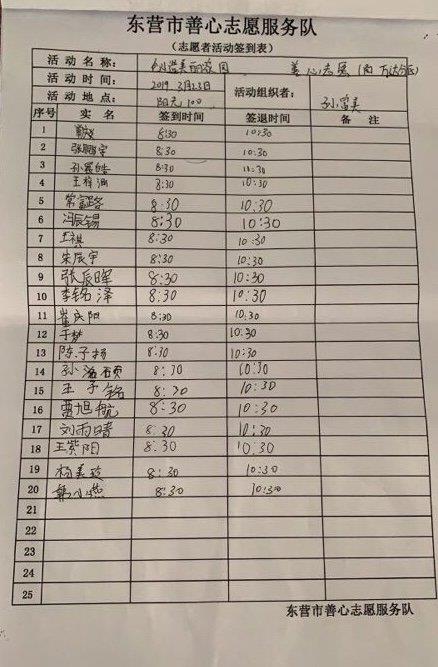 东营市善心志愿服务队
（志愿者活动签到表）
活动名称： 美丽校园 善心志愿（西 万达分队）
活动时间： 2019 3月23日
活动地点： 阳光100 活动组织者： 孙富美
序号 实名 签到时间 签退时间 备注
1 8:30 10:30
2 张鹏宇 8:30 10:30
3 8:30 10:30
4 王梓涵 8:30 10:30
5 8:30 10:30
6 冯辰锡 8:30 10:30
7 王祺 8:30 10:30
8 宋辰宇 8:30 10:30
9 张辰晖 8:30 10:30
10 李铭泽 8:30 10:30
11 崔庆阳 8:30 10:30
12 于梦 8:30 10:30
13 陈子扬 8:30 10:30
14 8:30 10:30
15 王子铭 8:30 10:30
16 曹旭航 8:30 10:30
17 刘雨晴 8:30 10:30
18 王紫阳 8:30 10:30
19 杨美玲 8:30 10:30
20 韩小燕 8:30 10:30
21
22
23
24
25
东营市善心志愿服务队